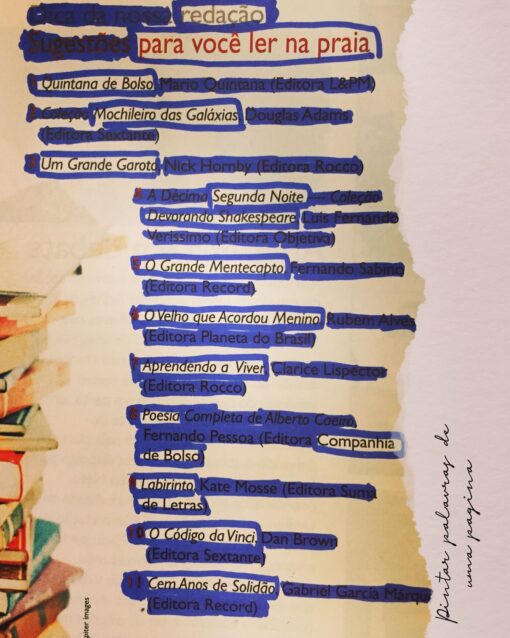 Dica da nossa redação
Sugestões para você ler na praia
1 Quintana de Bolso, Mario Quintana (Editora L&PM)
2 Coleção Mochileiro das Galáxias, Douglas Adams
(Editora Sextante)
3 Um Grande Garoto, Nick Hornby (Editora Rocco)
4 A Décima Segunda Noite — Coleção
Devorando Shakespeare, Luis Fernando
Verissimo (Editora Objetiva)
5 O Grande Mentecapto, Fernando Sabino
(Editora Record)
6 O Velho que Acordou Menino, Rubem Alves
(Editora Planeta do Brasil)
7 Aprendendo a Viver, Clarice Lispector
(Editora Rocco)
8 Poesia Completa de Alberto Caeiro,
Fernando Pessoa (Editora Companhia
de Bolso)
9 Labirinto, Kate Mosse (Editora Suma
de Letras)
10 O Código da Vinci, Dan Brown
(Editora Sextante)
11 Cem Anos de Solidão, Gabriel García Márqu
(Editora Record)
piter images
Pintar palavras de
uma página